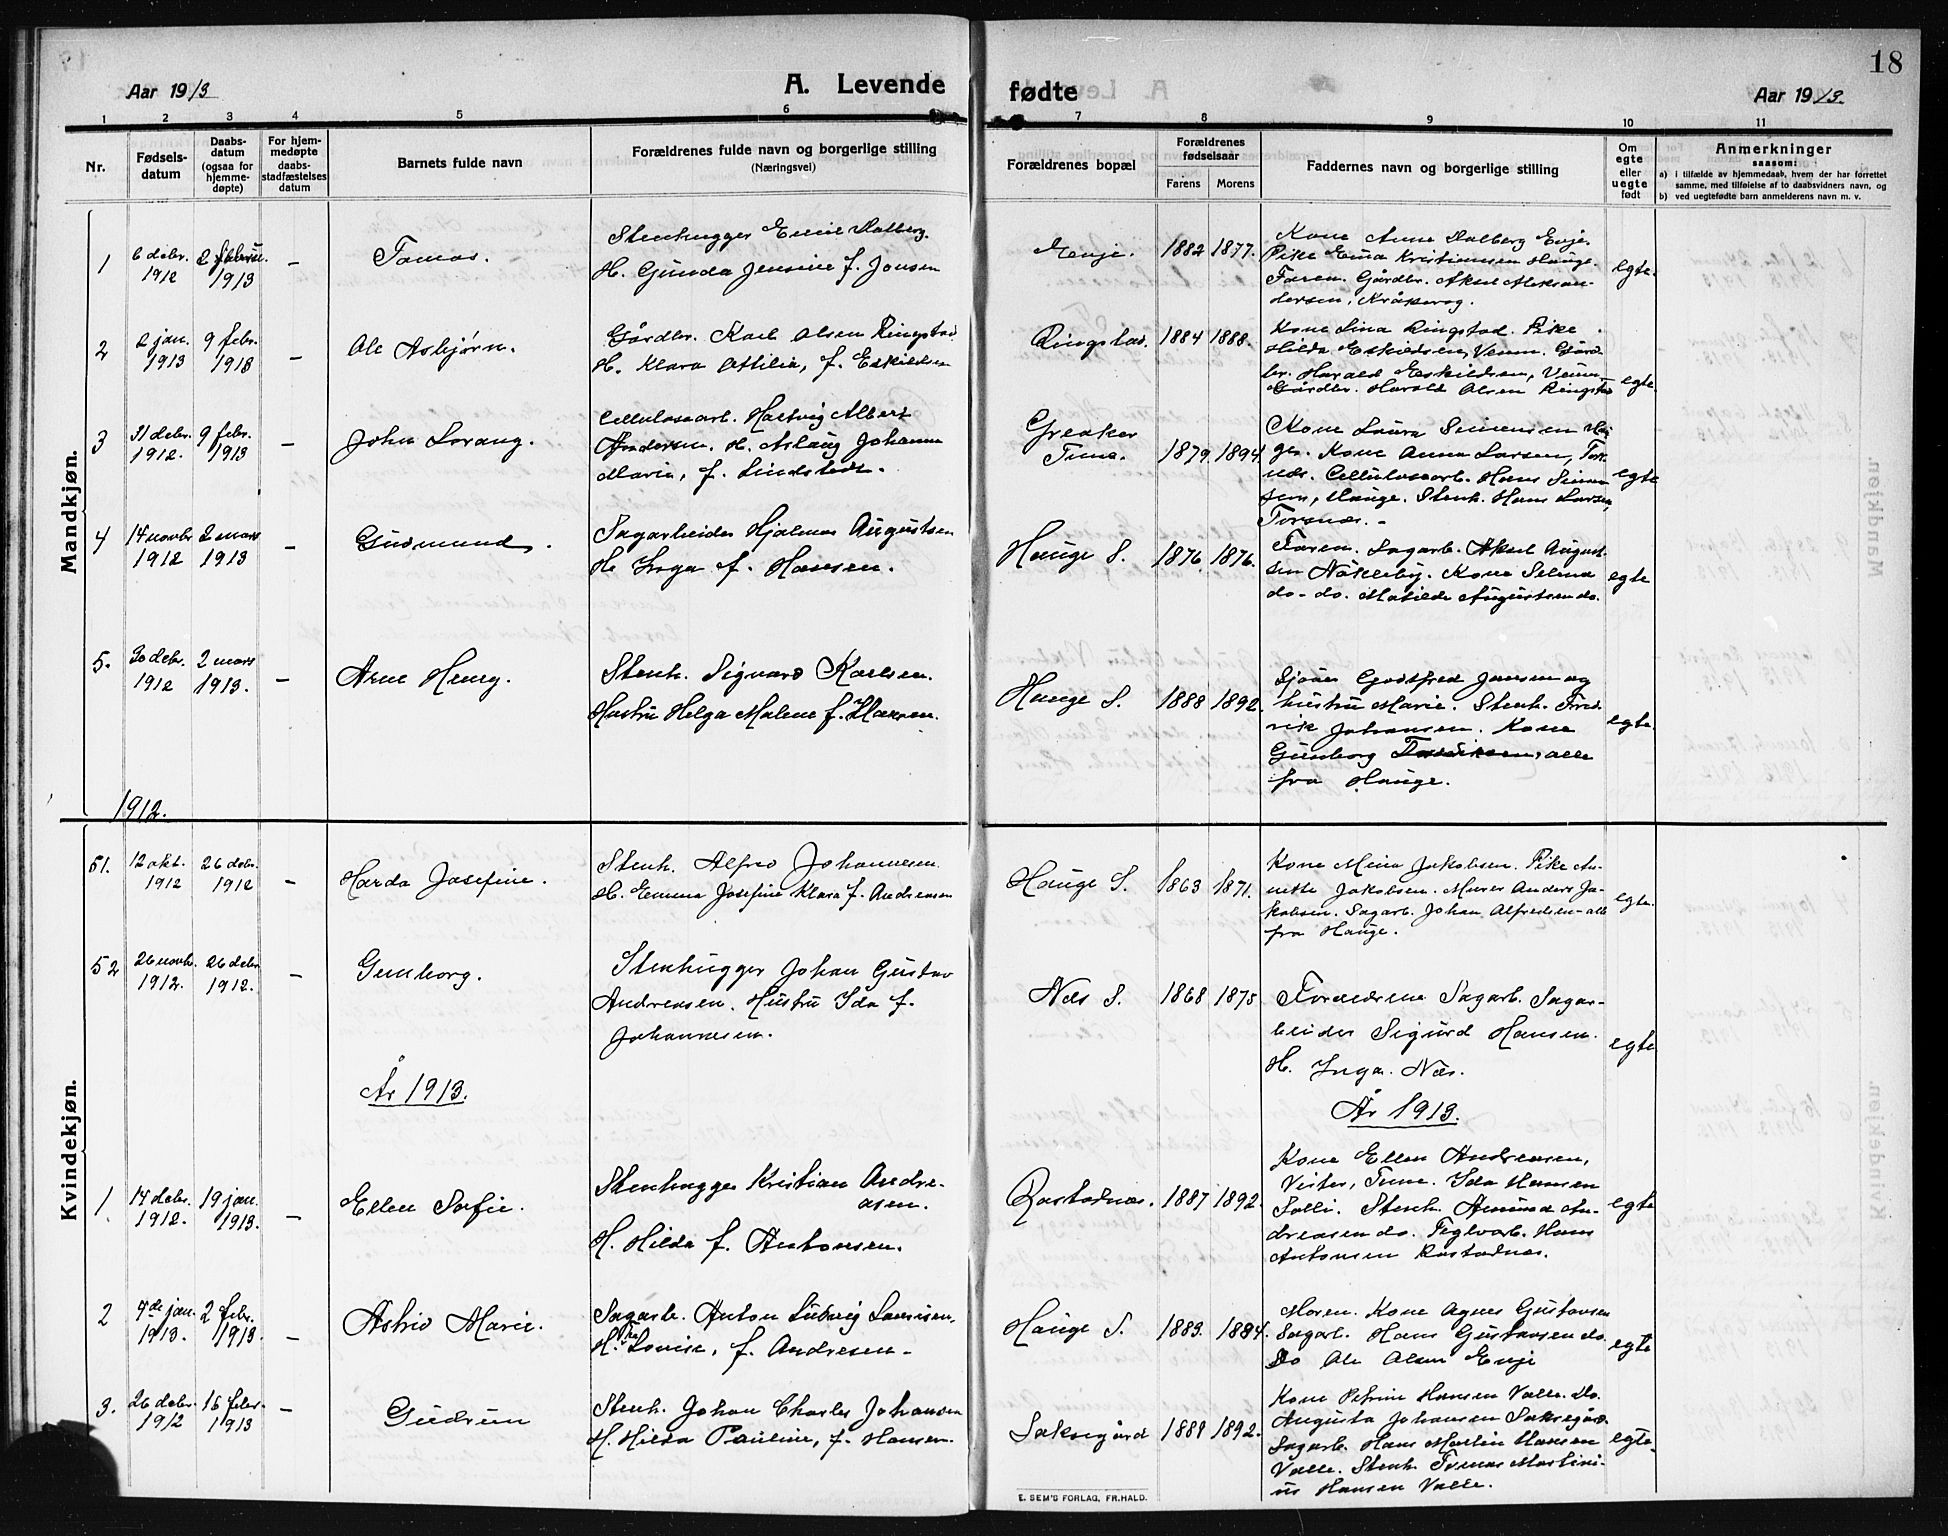 18
Aar 1913
A. Levende
fødte
Aar 1913.
1 2 3 4 5 6 7 8 9 10 11
Nr.
Fødsels-
datum
Daabs-
datum
(ogsaa for
hjemme-
døpte)
For hjem-
medøpte
daabs-
stadfæstelses
datum
Barnets fulde navn
Forældrenes fulde navn og borgerlige stilling
(Næringsvei)
Forældrenes bopæl
Forældrenes
fødselsaar
Farens Morens
Faddernes navn og borgerlige stilling
Om
egte
eller
uegte
født
Anmerkninger
saasom:
a) i tilfælde av hjemmedaab, hvem der har forrettet
samme, med tilføielse af to daabsvidners navn, og
b) ved uegtefødte barn anmelderens navn m. v.
Mandkjøn.
1
6 debr.
1912
2
1913
–
Tomas.
Stenhugger Emil Dalberg.
H. Gunda Jensine f. Jensen
Enje.
1882 1877.
Kone Anna Dalberg Enje.
Pike Emma Kristiansen Hauge.
Faren. Gårdbr. Aksel Aleksan-
dersen, Kråkerøy.
egte.
2
2 jan.
1913
9 febr.
1913
–
Ole Asbjørn.
Gårdbr. Karl Olsen Ringstad
H. Klara Otilie, f. Eskildsen
Ringstad.
1884 1888.
Kone Lina Ringstad. Pike
Hilda Eskildsen, Veum. Gård-
br. Harald Eskildsen, Veum
Gårdbr. Harald Olsen Ringstad
egte.
3
31 debr.
1912.
9 febr.
1913
–
John Lorang.
Cellulosearb. Hartvig Albert
Andersen. H. Aslaug Johanne
Marie, f. Lindstedt.
Greaker
Tune.
1879 1894.
Kone Laura Simensen Hau-
ge. Kone Anna Larsen, Tors-
næs. Cellulosearb. Hans Simen-
sen, Hauge. Stenh. Hans Larsen,
Torsnæs. –
egte
4
14 novbr
1912
2 mars
1913
–
Gudmund.
Sagarbeider Hjalmar Augustsen
H. Inga f. Hansen.
Hauge S.
1876. 1876.
Faren. Sagarb. Aksel August-
sen Nøkleby. Kone Selma
do – do. Matilde Augustsen do.
egte
5.
30 debr.
1912
2 mars
1913.
–
Arne Henry.
Stenh. Sigvard Karlsen.
Hustru Helga Malene f. Hansen.
Hauge S.
1888 1892.
Sjøm. Godtfred Jansen og
hustru Marie. Stenh. Fred-
rik Johansen. Kone
Gunborg Fredriksen, alle
fra Hauge.
egte.
1912.
Kvindekjøn.
51.
12 okt.
1912
26 debr.
1912
–
Harda Josefine.
Stenh. Alfred Johannesen
H. Emma Josefine Klara f. Andreasen
Hauge S.
1863 1871.
Kone Mina Jakobsen. Pike An-
nette Jakobsen. Murer Anders Ja-
kobsen. Sagarb. Johan Alfredsen – alle
fra Hauge.
egte.
52
26 novb.
1912.
26 debr
1912.
–
Gunborg.
Stenhugger Johan Gustav
Andreasen. Hustru Ida f.
Johannesen.
Næs S.
1868 1875
Forældrene Sagarb. Sagar-
beider Sigurd Hansen.
H. Inga. Næs.
egte
År 1913.
År 1913.
1.
14 debr.
1912.
19 jan.
1913.
–
Ellen Sofie.
Stenhugger Kristian Andre-
asen.
H. Hilda f. Antonsen.
Rostadnæs.
1887 1892.
Kone Ellen Andreasen,
Vister, Tune. Ida Hansen
Solli. Stenh. Amund An-
dreasen do. Teglvarb. Hans
Antonsen Rostadnæs.
egte
2
4de jan.
1913.
2 febr.
1913
–
Astrid Marie.
Sagarb. Anton Ludvig Lauritsen,
H. Lovise, f. Andresen –
Hauge S.
1883. 1884.
Moren. Kone Agnes Gustavsen
Sagarb. Hans Gustavsen do.
Do Ole Olsen Enje
egte
3.
26 debr.
1912
16 febr.
1913
–
Gudrun
Stenh. Johan Charles Johansen
H. Hilda Pauline, f. Hansen.
Saksegård
1889 1892.
Kone Petrine Hansen Valle. Do.
Augusta Johansen Saksegård.
Sagarb. Hans Martin Hansen
Valle. Stenh. Tomas Martini-
us Hansen Valle.
egte.
E. SEM'S FORLAG, FR.HALD.